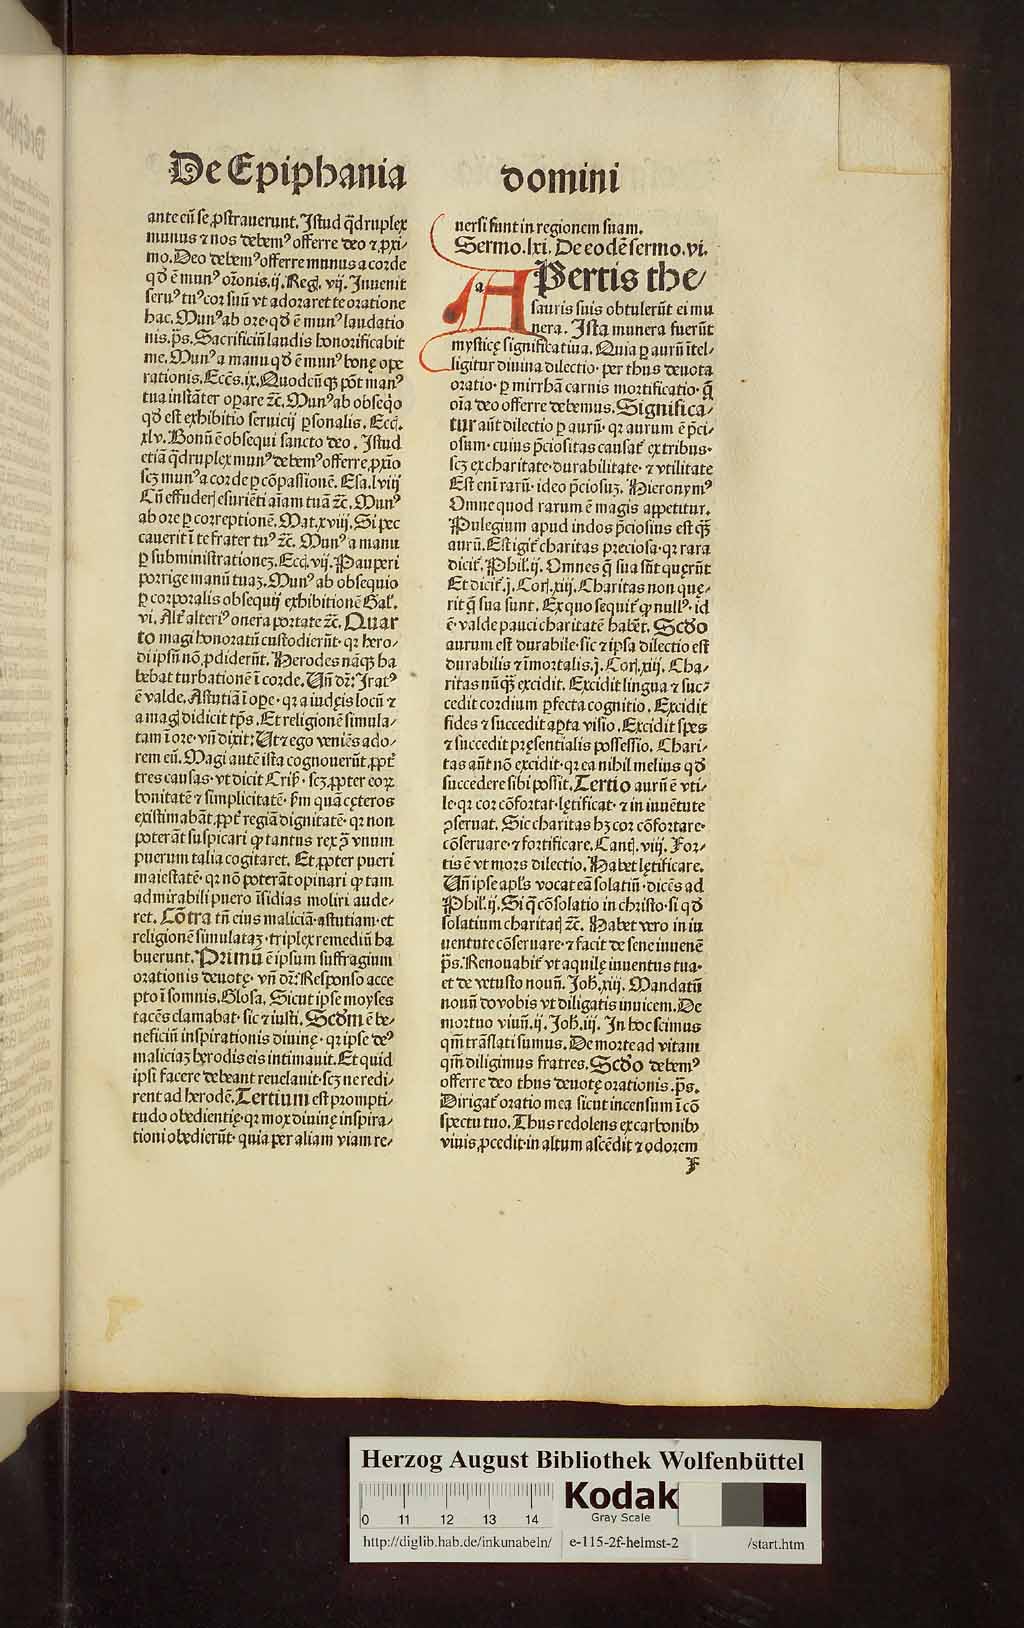 De Epiphania domini
ante eū se ꝓstrauerunt. Istud q̄druplex
munus ⁊ nos debemꝰ offerre deo ⁊ ꝓxi⸗
mo. Deo debemꝰ offerre munus a corde
qđ ē munꝰ or̄onis. ij. Reg. vij. Inuenit
seruꝰ tuꝰ cor suū vt adoraret te oratione
hac. Munꝰ ab ore· qđ ē munꝰ laudatio
nis. p̄s. Sacrificiū laudis honorificabit
me. Munꝰ a manu qđ ē munꝰ bonę ope
rationis. Ecc̄s. ix. Quodcū qꝫ pōt manꝰ
tua instāter oꝑare ⁊c̄. Munꝰ ab obseq̇o
qđ est exhibitio seruicij ꝑsonalis. Ecci.
xlv. Bonū ē obsequi sancto deo. Istud
etiā q̄druplex munꝰ debemꝰ offerre ꝓxīo
scꝫ munꝰ a corde ꝑ cōpassionē. Esa. lviij
Cū effuderis esuriēti aīam tuā ⁊c̄. Munꝰ
ab ore ꝑ correptionē. Mat. xviij. Si pec
cauerit ī te frater tuꝰ ⁊c̄. Munꝰ a manu
ꝑ subministrationeꝫ. Ecci. vij. Pauperi
porrige manū tuaꝫ. Munꝰ ab obsequio
ꝑ corporalis obsequij exhibitionē Gal̛.
vi. Alt̛ alteriꝰ onera portate ⁊c̄. Quar
to magi honoratū custodierūt· qr hero⸗
di ipsū nō ꝓdiderūt. Herodes nāqꝫ ha
bebat turbationē ī corde. Vn̄ dr̄: Iratꝰ
ē valde. Astutiā ī oꝑe· qr a iudęis locū ⁊
a magis didicit tp̄s. Et religionē simula⸗
tam ī ore· vn̄ dixit: Ut ⁊ ego veniēs ado⸗
rem eū. Magi autē ista cognouerūt ꝓpt̛
tres causas· vt dicit Cris̛· scꝫ ꝓpter eoꝝ
bonitatē ⁊ simplicitatē· ẜm quā cęteros
existimabāt· ꝓpt̛ regiā dignitatē· qr non
poterāt suspicari ꝙ tantus rex ꝯ̄ vnum
puerum talia cogitaret. Et ꝓpter pueri
maiestatē· qr nō poterāt opinari ꝙ tam
admirabili puero īsidias moliri aude⸗
ret. Cōtra tn̄ eius maliciā· astutiam· et
religionē simulataꝫ· triplex remediū ha
buerunt. Primū ē ipsum suffragium
orationis deuotę· vn̄ dr̄: Responso acce
pto ī somnis. Glosa. Sicut ipse moyses
tacēs clamabat· sic ⁊ iusti. Scd̄m ē be⸗
neficiū inspirationis diuinę· qr ipse deꝰ
maliciaꝫ herodis eis intimauit. Et quid
ipsi facere debeant reuelauit· scꝫ ne redi⸗
rent ad herodē. Tertium est prompti⸗
tudo obedientię· qr mox diuinę inspira⸗
tioni obedierūt· quia per aliam viam re⸗
uersi sunt in regionem suam.
Sermo. lxi. De eodē sermo. vi.
a
APertis the⸗
sauris suis obtulerūt ei mu
nera. Ista munera fuerūt
mysticę significatiua. Quia ꝑ aurū ītel⸗
ligitur diuina dilectio· per thus deuota
oratio· ꝑ mirrhā carnis mortificatio· q̄
oīa deo offerre debemus. Significa⸗
tur aūt dilectio ꝑ aurū· qr aurum ē p̄ci⸗
osum· cuius p̄ciositas causat̛ ex tribus·
scꝫ ex charitate· durabilitate· ⁊ vtilitate
Est enī rarū· ideo p̄ciosuꝫ. Hieronymꝰ
Omne quod rarum ē magis appetitur.
Pulegium apud indos p̄ciosius est qꝫ̄
aurū. Est igit̛ charitas preciosa· qr rara
dicit̛. Phil̛. ij. Omnes q̄ sua sūt quęrūt
Et dicit̛. j. Cori. xiij. Charitas non quę⸗
rit q̄ sua sunt. Ex quo sequit̛ ꝙ nullꝰ· id
ē· valde pauci charitatē habēt. Scd̄o
aurum est durabile· sic ⁊ ipsa dilectio est
durabilis ⁊ īmortalis. j. Cori. xiij. Cha⸗
ritas nūqꝫ̄ excidit. Excidit lingua ⁊ suc⸗
cedit cordium ꝑfecta cognitio. Excidit
fides ⁊ succedit aꝑta visio. Excidit spes
⁊ succedit pręsentialis possessio. Chari⸗
tas aūt nō excidit· qr ea nihil melius qđ
succedere sibi possit. Tertio aurū ē vti⸗
le· qr cor cōfortat· lętificat· ⁊ in iuuētute
ꝯseruat. Sic charitas hꝫ cor cōfortare·
cōseruare· ⁊ fortificare. Canti. viij. For⸗
tis ē vt mors dilectio. Habet lętificare.
Vn̄ ipse apl̄s vocat eā solatiū· dicēs ad
Phil̛. ij. Si q̄ cōsolatio in christo· si qđ
solatium charitatis ⁊c̄. Habet vero in iu
uentute cōseruare· ⁊ facit de sene iuuenē
p̄s. Renouabit̛ vt aquilę iuuentus tua·
et de vetusto nouū. Joh̄. xiij. Mandatū
nouū do vobis vt diligatis inuicem. De
mortuo viuū. ij. Joh̄. iij. In hoc scimus
qm̄ trāslati sumus. De morte ad vitam
qm̄ diligimus fratres. Scd̄o debemꝰ
offerre deo thus deuotę orationis. p̄s.
Dirigat̛ oratio mea sicut incensum ī cō
spectu tuo. Thus redolens ex carbonibꝰ
viuis ꝓcedit· in altum ascēdit ⁊ odorem
F
Herzog August Bibliothek Wolfenbüttel
0 11 12 13 14
Kodak
Gray Scale
http://diglib.hab.de/inkunabeln/ e-115-2f-helmst-2 /start.htm